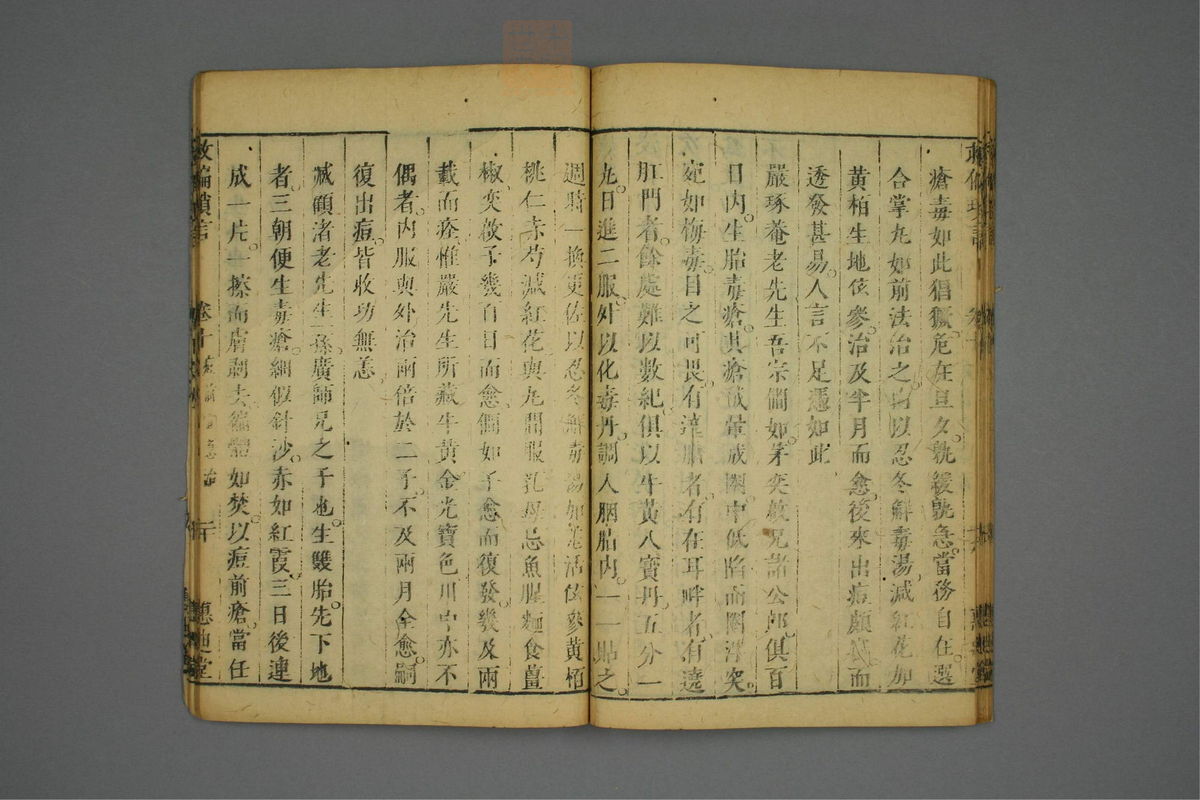 瘡毒如此猖獗危在旦夕孰緩孰急當務自在選
合掌丸如前法治之內以忍冬解毒湯減紅花加
黃柏生地伭參治及半月而愈後來出痘頗　而
透發甚易人言不足憑如此
嚴琢菴老先生吾宗僩如茅奕敫兄諸公郎俱百
日內生胎毒瘡其瘡成暈成圈中低陷而圈浮突
宛如梅毒目之可畏有　脂者有在耳畔者有遶
肛門者餘處難以數紀俱以牛黃八寶丹五分一
丸日進二服外以化毒丹調入胭脂內一一貼之
週時一換更佐以忍冬解毒湯加　活伭參黃栢
桃仁赤芍減紅花與丸間服乳母忌魚腥麵食薑
椒奕敫子幾百日而愈僩如子愈而復發幾及兩
載而痊惟嚴先生所藏牛黃金光寶色川中亦不
偶者內服與外治兩倍於二子不及兩月全愈嗣
復出痘皆收功無恙
減顧渚老先生孫廣師兄之子也生雙胎先下地
者三朝便生毒瘡細假針沙赤如紅霞三日後連
成一片一擦而膚剥去徧體如焚以痘前瘡當任
救偏瑣言
卷十
惠迪堂